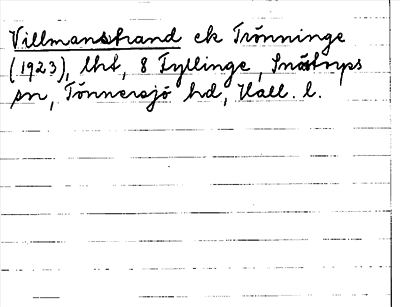 Villmanstrand ek Trönninge
(1923), lht, 8 Fyllinge, Snöstorps
sn, Tönnersjö hd, Hall. l.